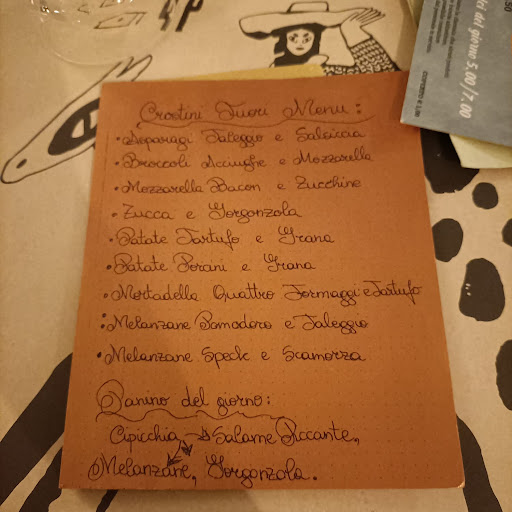 Crostini Fuori Menu:
• Asparagi Taleggio e Salsiccia
• Broccoli Acciughe e Mozzarella
• Mozzarella Bacon e Zucchine
• Zucca e Gorgonzola
• Patate Tartufo e Grana
• Patate Porcini e Grana
• Mortadella Quattro Formaggi e Tartufo
• Melanzane Pomodoro e Taleggio
• Melanzane Speck e Scamorza
Panino del giorno:
Cipicchia → Salame Piccante,
Melanzane, Gorgonzola.
del giorno 5,00 / 7,00